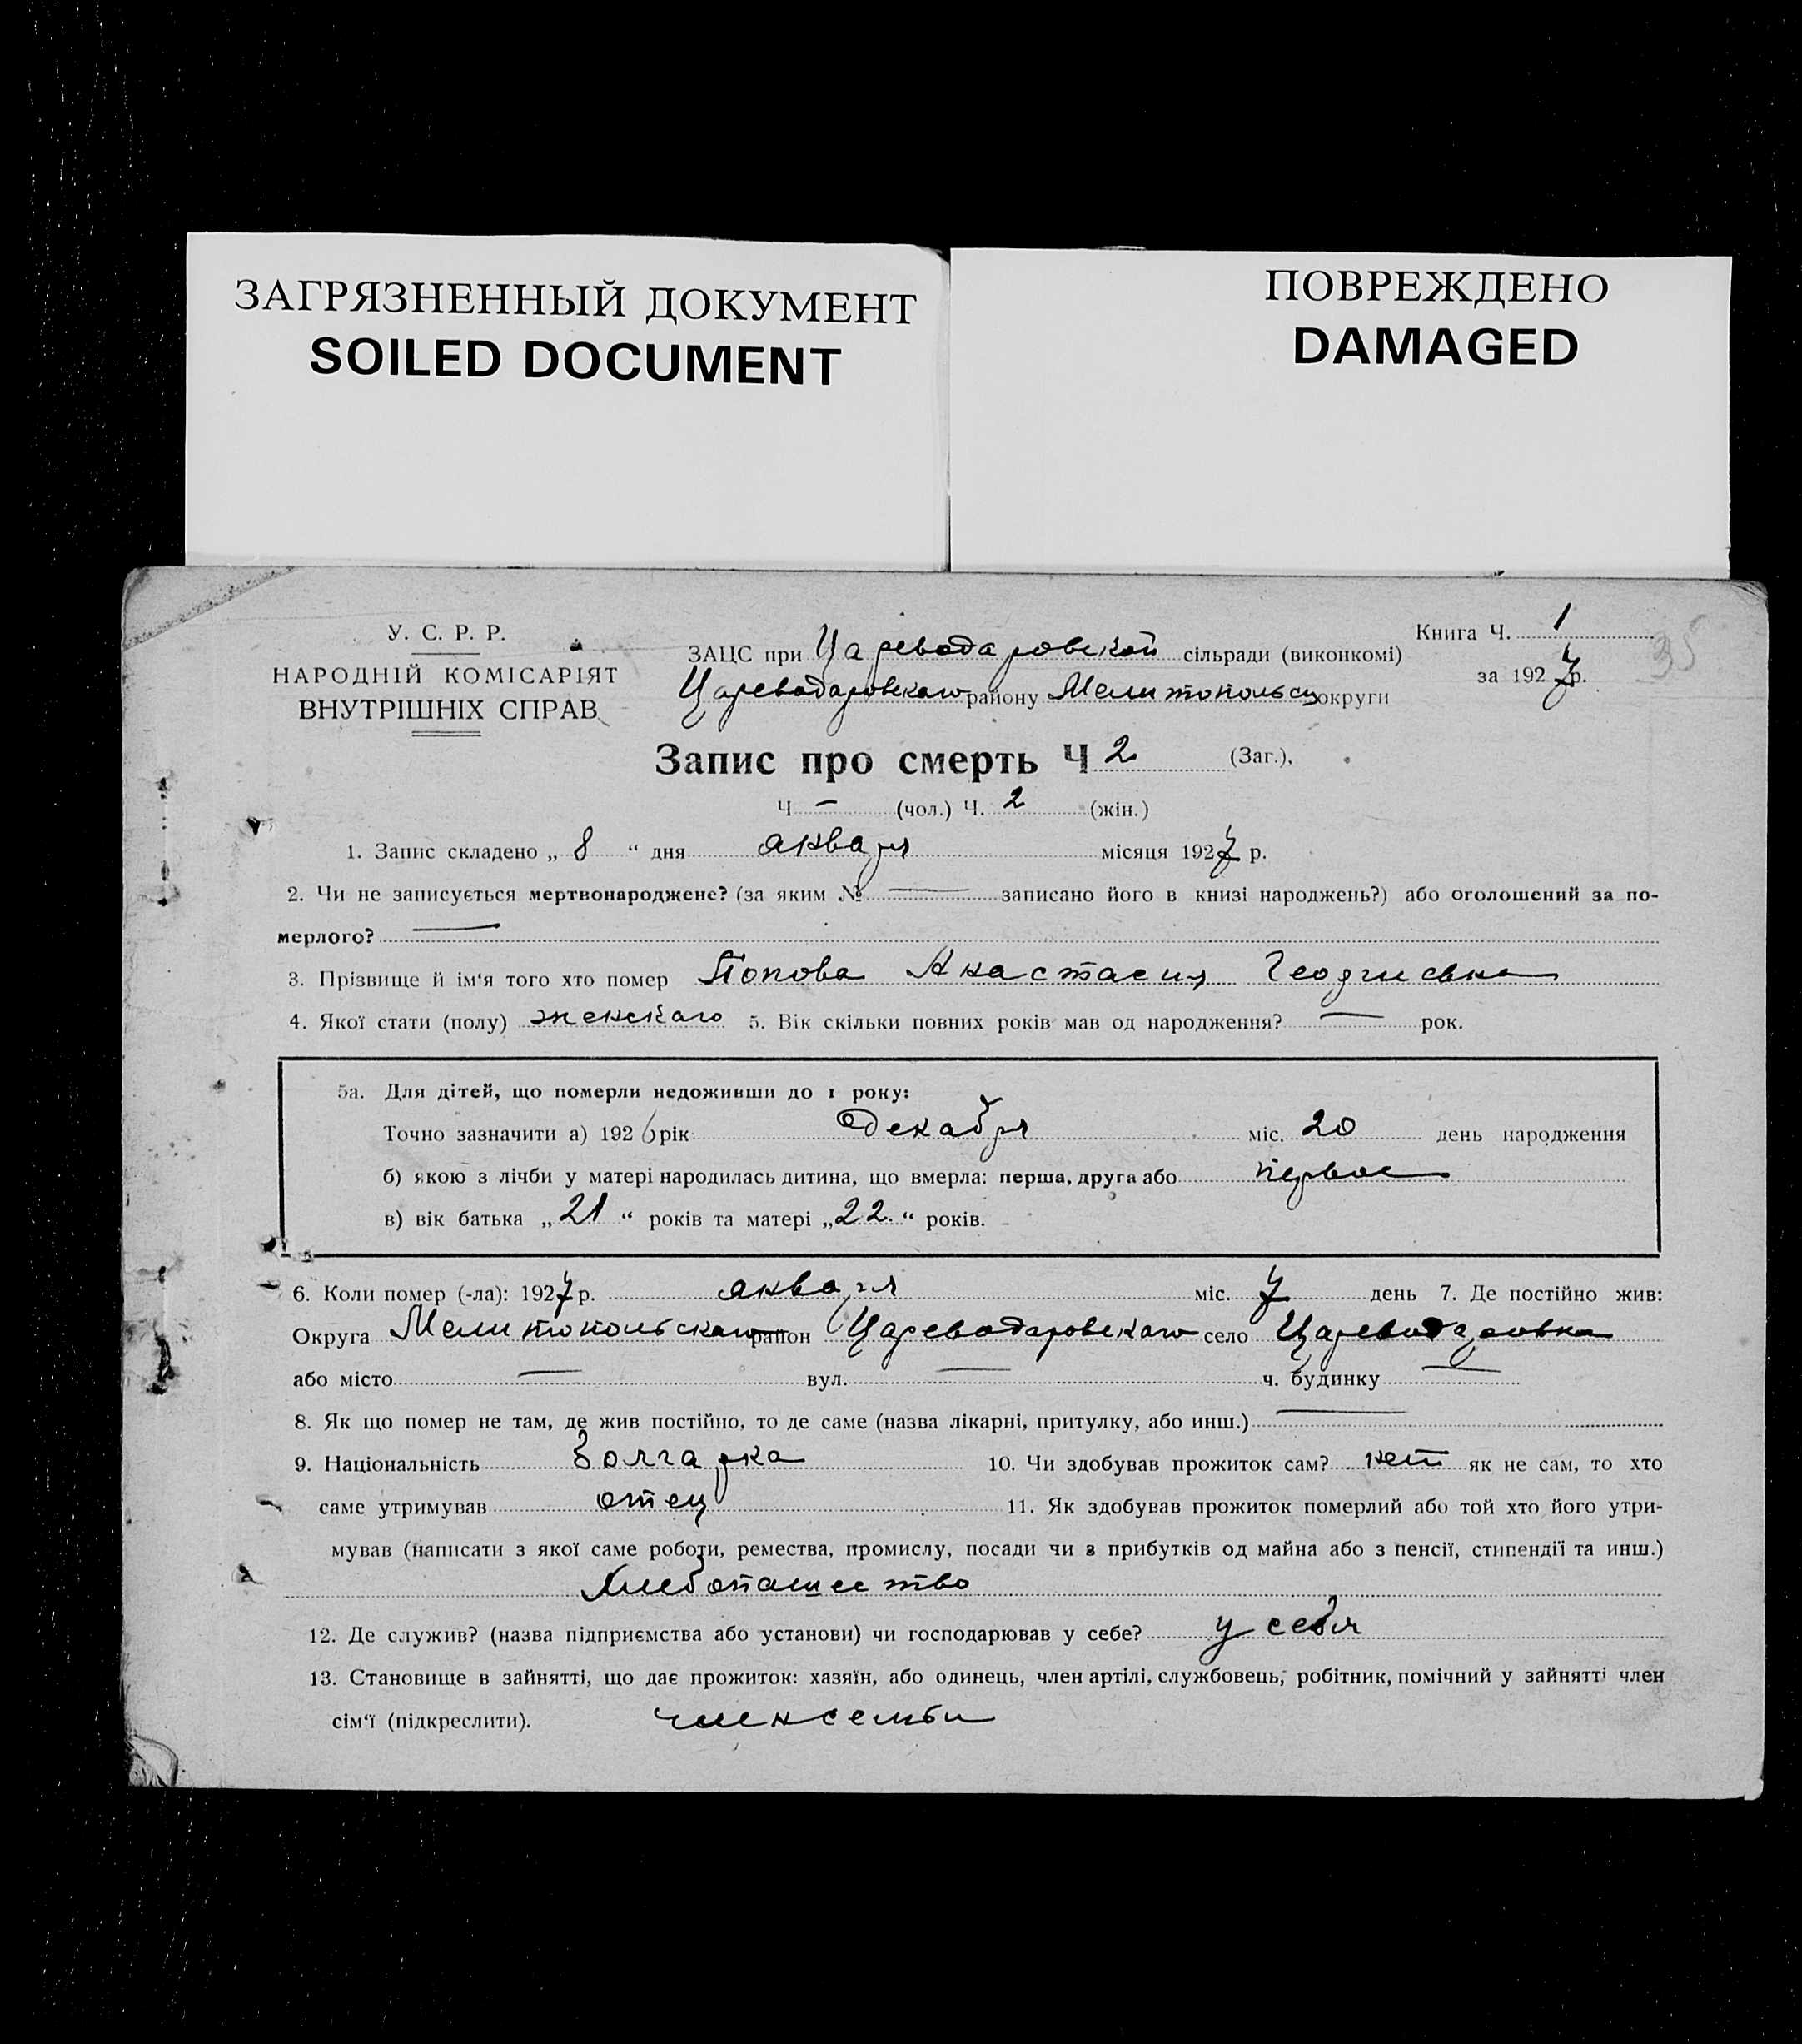 ЗАГРЯЗНЕННЫЙ ДОКУМЕНТ
SOILED DOCUMENT
ПОВРЕЖДЕНО
DAMAGED
У. С. Р. Р.
НАРОДНІЙ КОМІСАРІЯТ
ВНУТРІШНІХ СПРАВ
ЗАЦС при Цареводаровской сільради (виконкомі)
Цареводаровского району Мелитопольск округи
Книга Ч. 1
за 1927 р.
35
Запис про смерть Ч 2 (Заг.),
Ч — (чол.) Ч. 2 (жін.)
1. Запис складено „ 8 “ дня января місяця 1927 р.
2. Чи не записується мертвонароджене? (за яким № — записано його в книзі народжень?) або оголошений за по-
мерлого? —
3. Прізвище й ім‘я того хто помер Попова Анастасия Георгиевна
4. Якої стати (полу) женского 5. Вік скільки повних років мав од народження? — рок.
5а. Для дітей, що померли недоживши до 1 року:
Точно зазначити а) 1926 рік Декабря міс. 20 день народження
б) якою з лічби у матері народилась дитина, що вмерла: перша, друга або первое
в) вік батька „ 21 “ років та матері „ 22. “ років.
6. Коли помер (-ла): 1927 р. января міс. 7 день 7. Де постійно жив:
Округа Мелитопольского район Цареводаровского село Цареводаровка
або місто — вул. — ч. будинку —
8. Як що помер не там, де жив постійно, то де саме (назва лікарні, притулку, або инш.) —
9. Національність болгарка 10. Чи здобував прожиток сам? нет як не сам, то хто
саме утримував отец 11. Як здобував прожиток померлий або той хто його утри-
мував (написати з якої саме роботи, ремества, промислу, посади чи з прибутків од майна або з пенсії, стипендії та инш.)
Хлебопашество
12. Де служив? (назва підприємства або установи) чи господарював у себе? у себя
13. Становище в зайнятті, що дає прожиток: хазяїн, або одинець, член артілі, службовець, робітник, помічний у зайнятті член
сім‘ї (підкреслити). член семьи